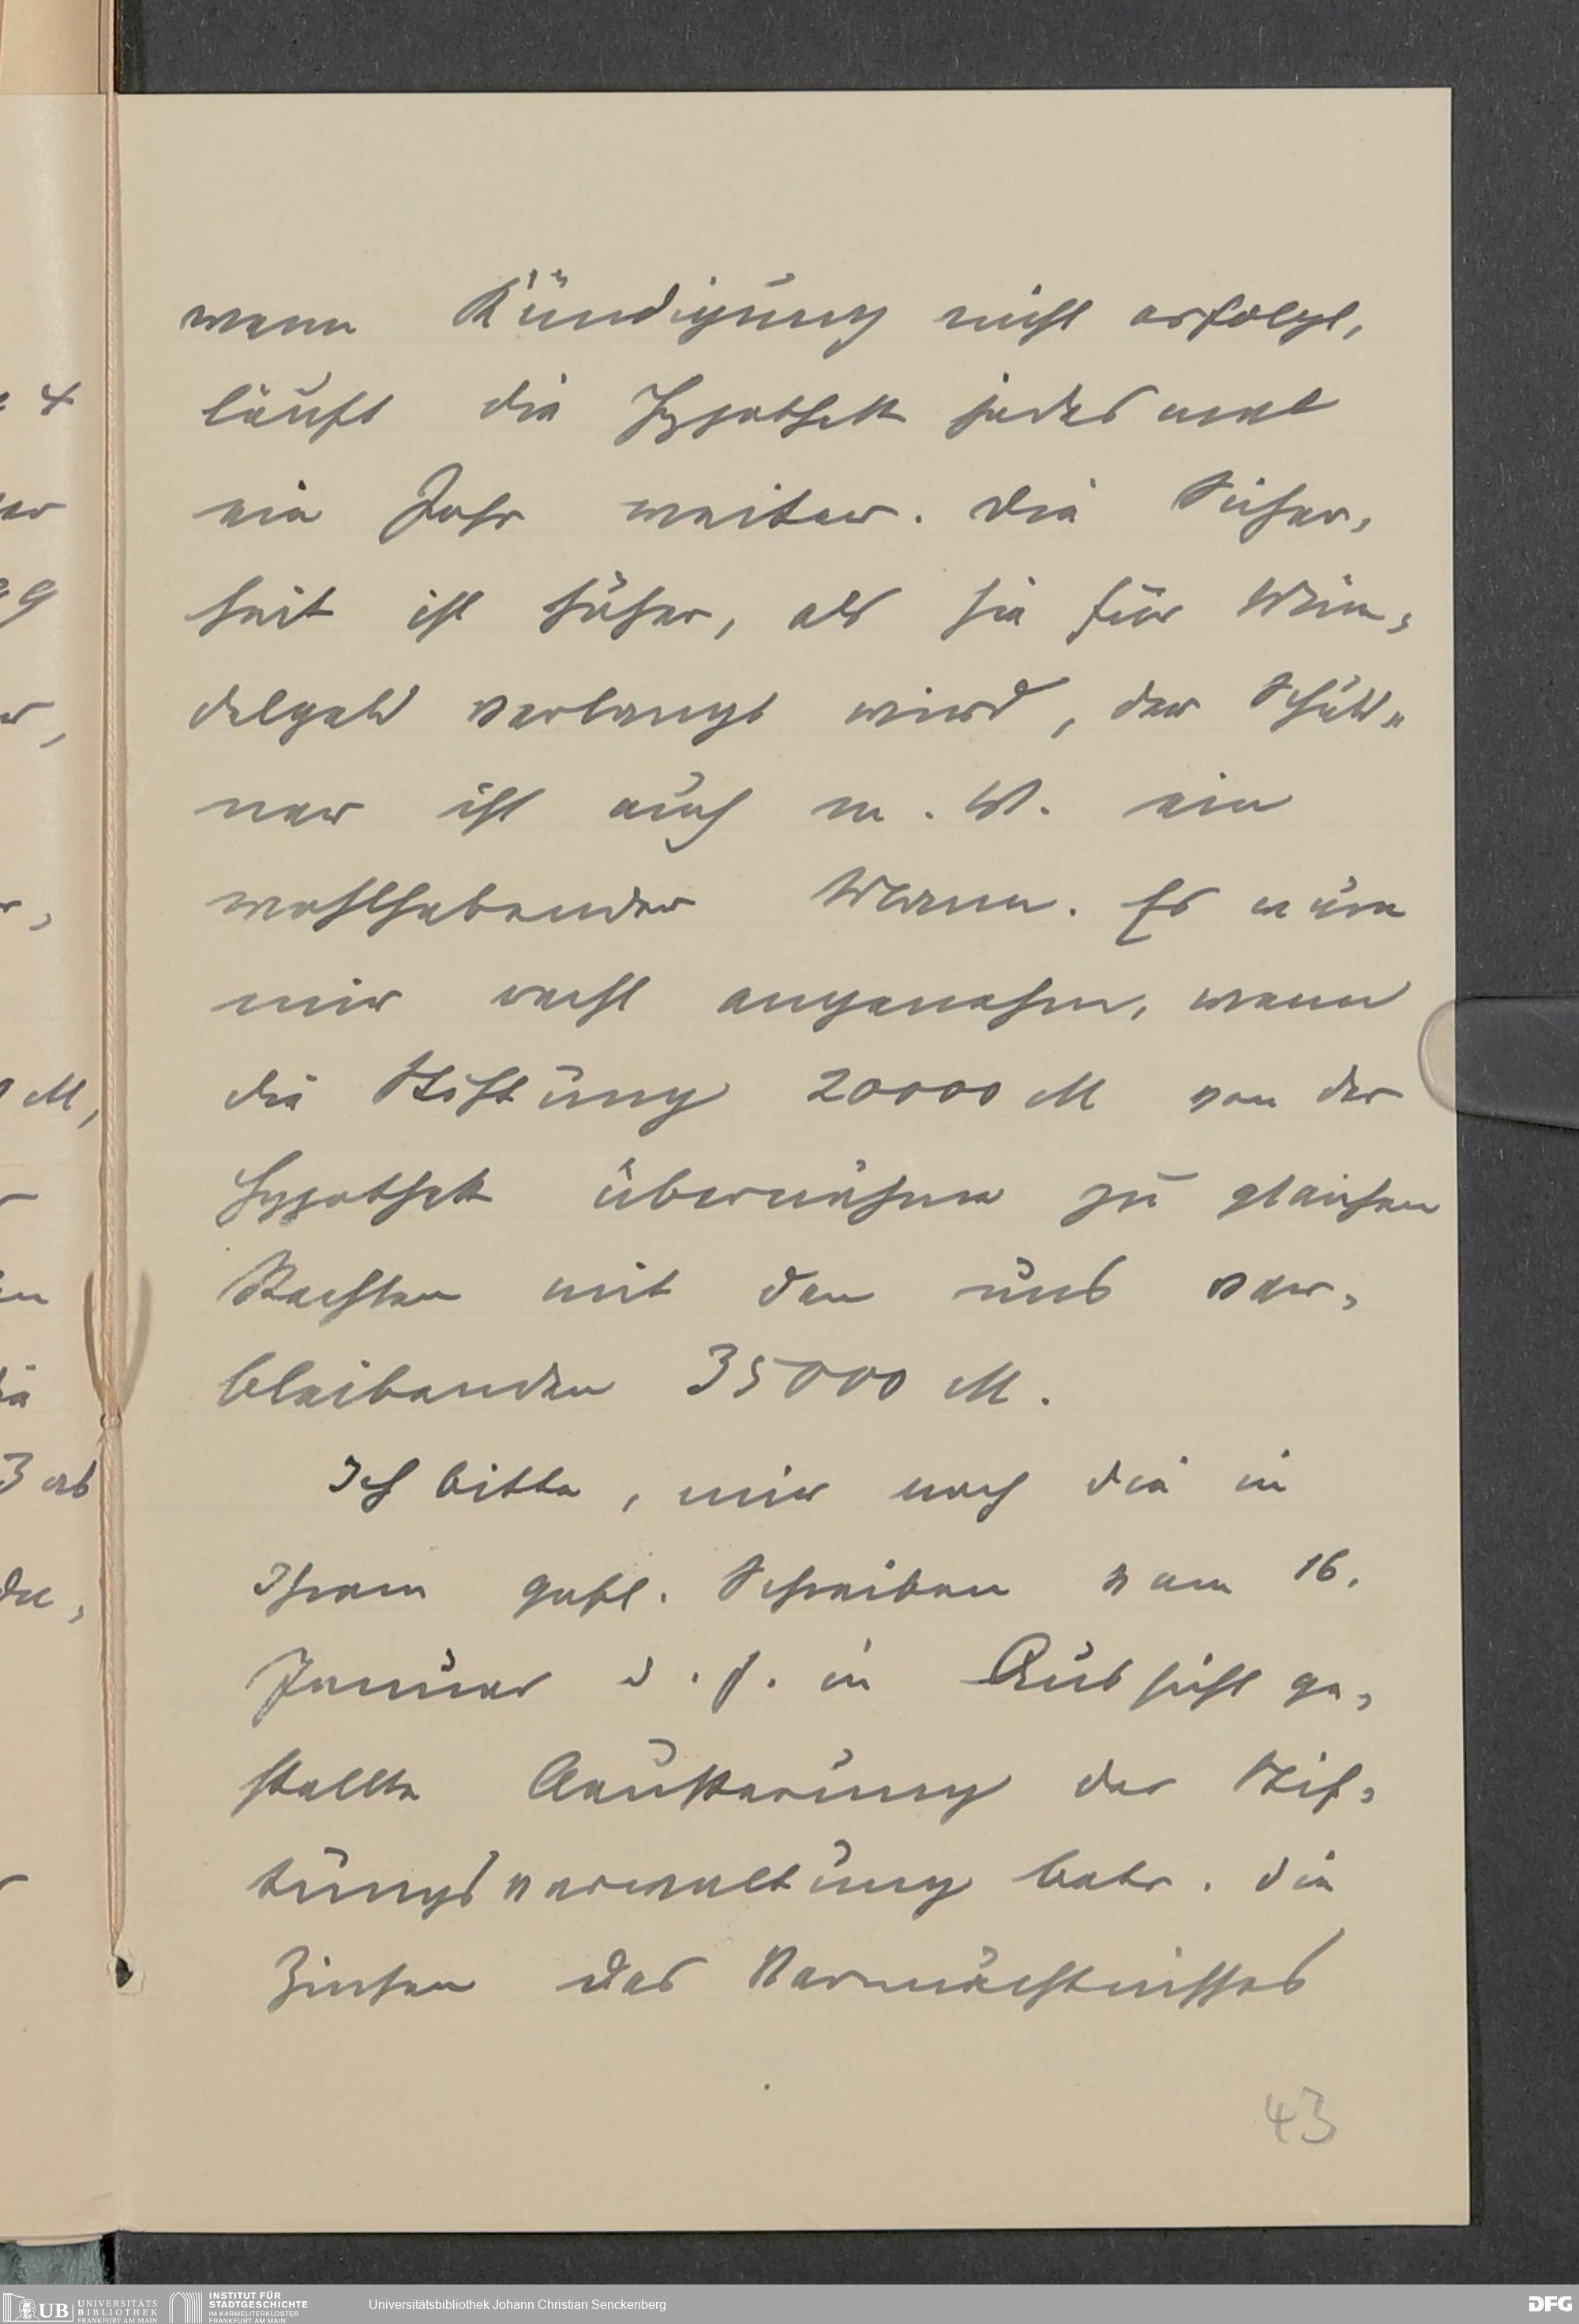 wenn Kündigung nicht erfolgt,
läuft die Hypothek jedesmal
ein Jahr weiter. Die Sicher-
heit ist höher, als sie für Mün-
delgeld verlangt wird, der Schuld-
ner ist auch m. W. ein
wohlhabender Mann. Es wäre
mir recht angenehm, wenn
die Stiftung 20000 M von der
Hypothek übernähme zu gleichen
Rechten mit den uns ver-
bleibenden 35000 M.
Ich bitte, mir noch die in
Ihrem gefl. Schreiben vom 16.
Januar d. J. in Aussicht ge-
stellte Aeußerung der Stif-
tungsverwaltung betr. die
Zinsen des Vermächtnisses
43
4
er
99
M,
3 ab
UB UNIVERSITÄTS
BIBLIOTHEK
FRANKFURT AM MAIN
INSTITUT FÜR
STADTGESCHICHTE
IM KARMELITERKLOSTER
FRANKFURT AM MAIN
Universitätsbibliothek Johann Christian Senckenberg
DFG